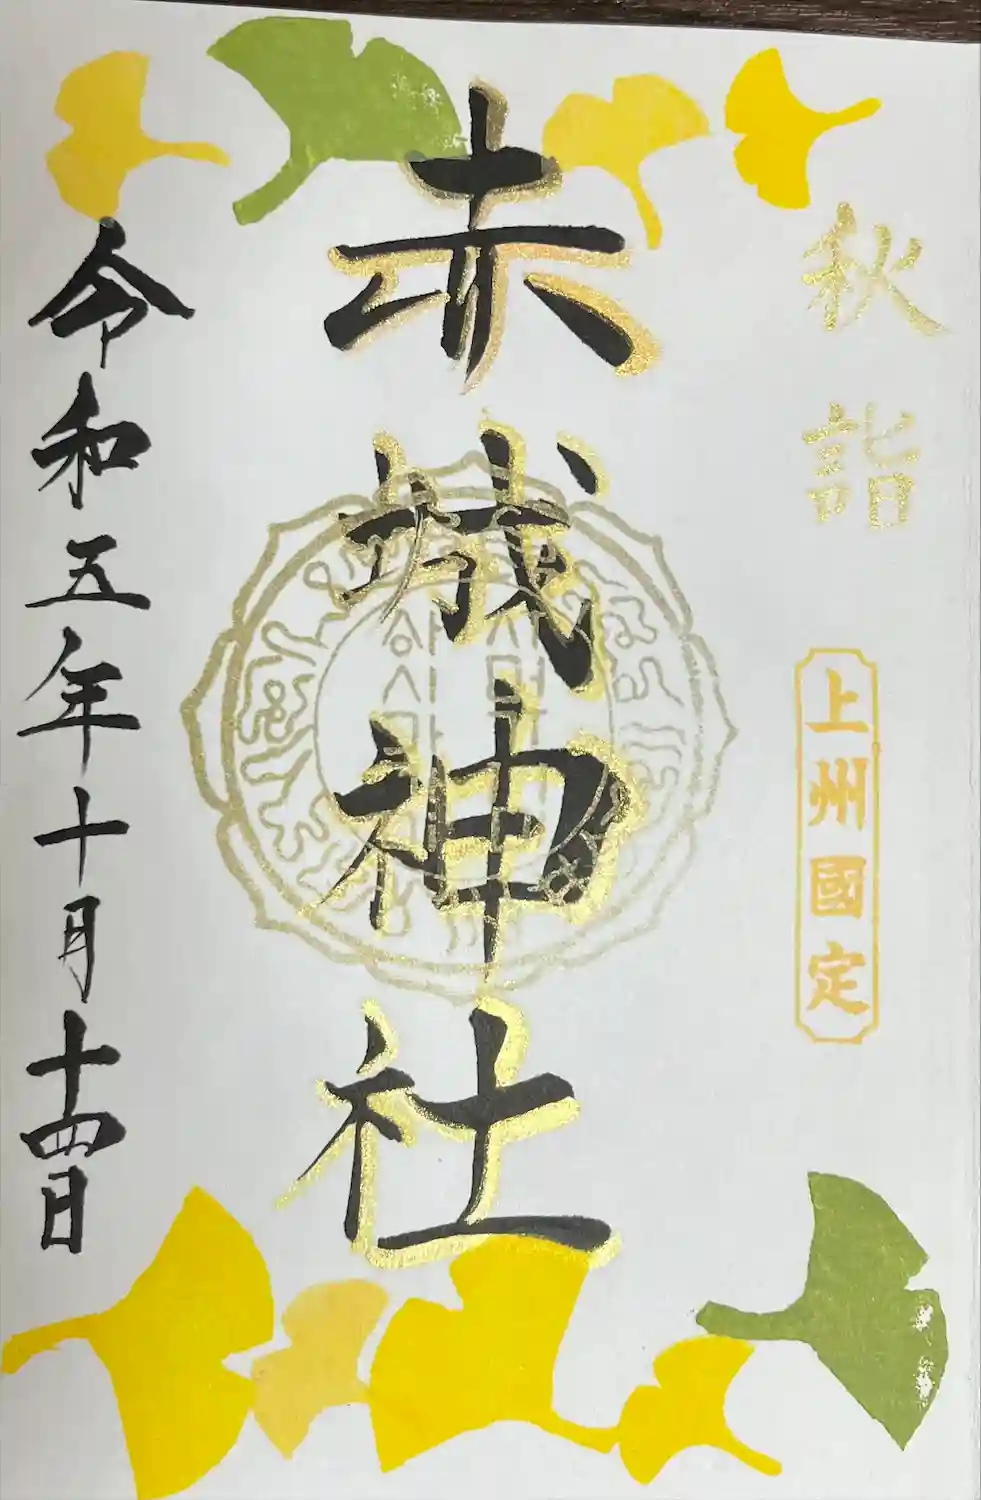 秋詣
上州國定
赤城神社
令和五年十月十四日